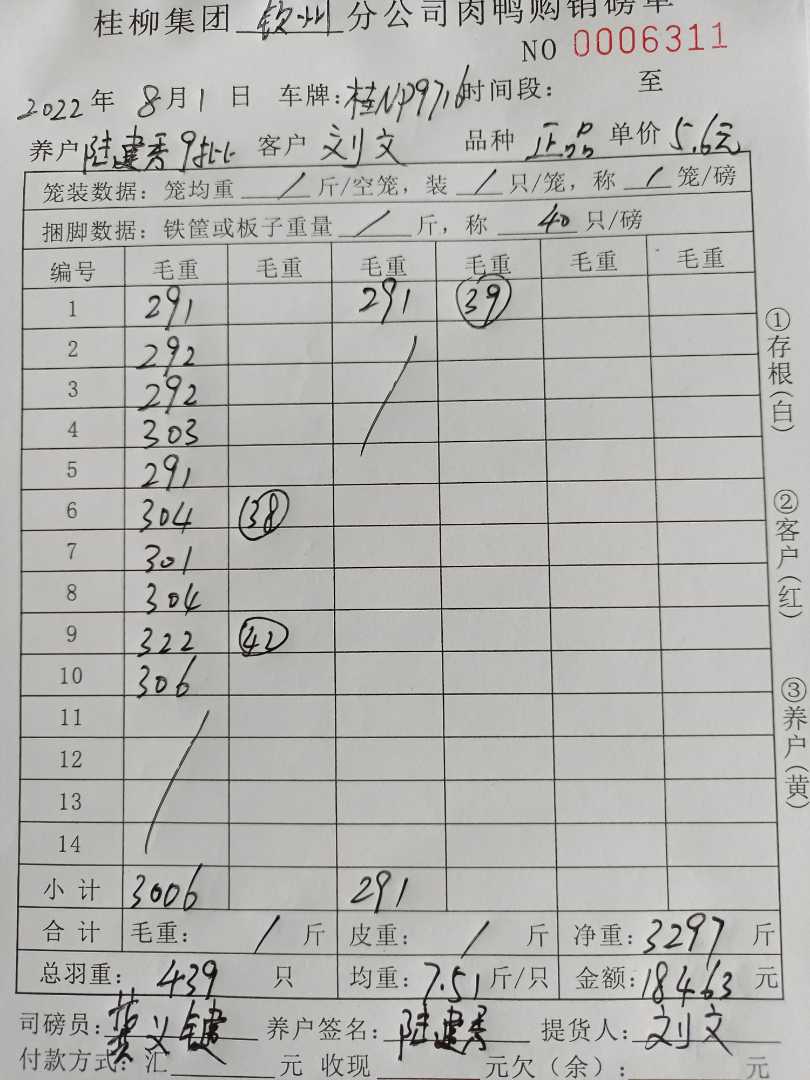 桂柳集团 钦州 分公司肉鸭购销磅单
NO 0006311
2022年 8月1日 车牌:桂NP9716 时间段: 至
养户 陆建秀9批 客户 刘文 品种 正品 单价 5.6元
笼装数据:笼均重 / 斤/空笼,装 / 只/笼,称 / 笼/磅
捆脚数据:铁筐或板子重量 / 斤,称 40 只/磅
编号 毛重 毛重 毛重 毛重 毛重 毛重
1 291 291 39
2 292
3 292
4 303
5 291
6 304 38
7 301
8 304
9 322 42
10 306
11
12
13
14
小计 3006 291
合计 毛重: / 斤 皮重: / 斤 净重:3297 斤
总羽重: 439 只 均重:7.51斤/只 金额:18463 元
司磅员:黄义键 养户签名:陆建秀 提货人:刘文
付款方式:汇 元 收现 元欠(余): 元
①存根(白)
②客户(红)
③养户(黄)